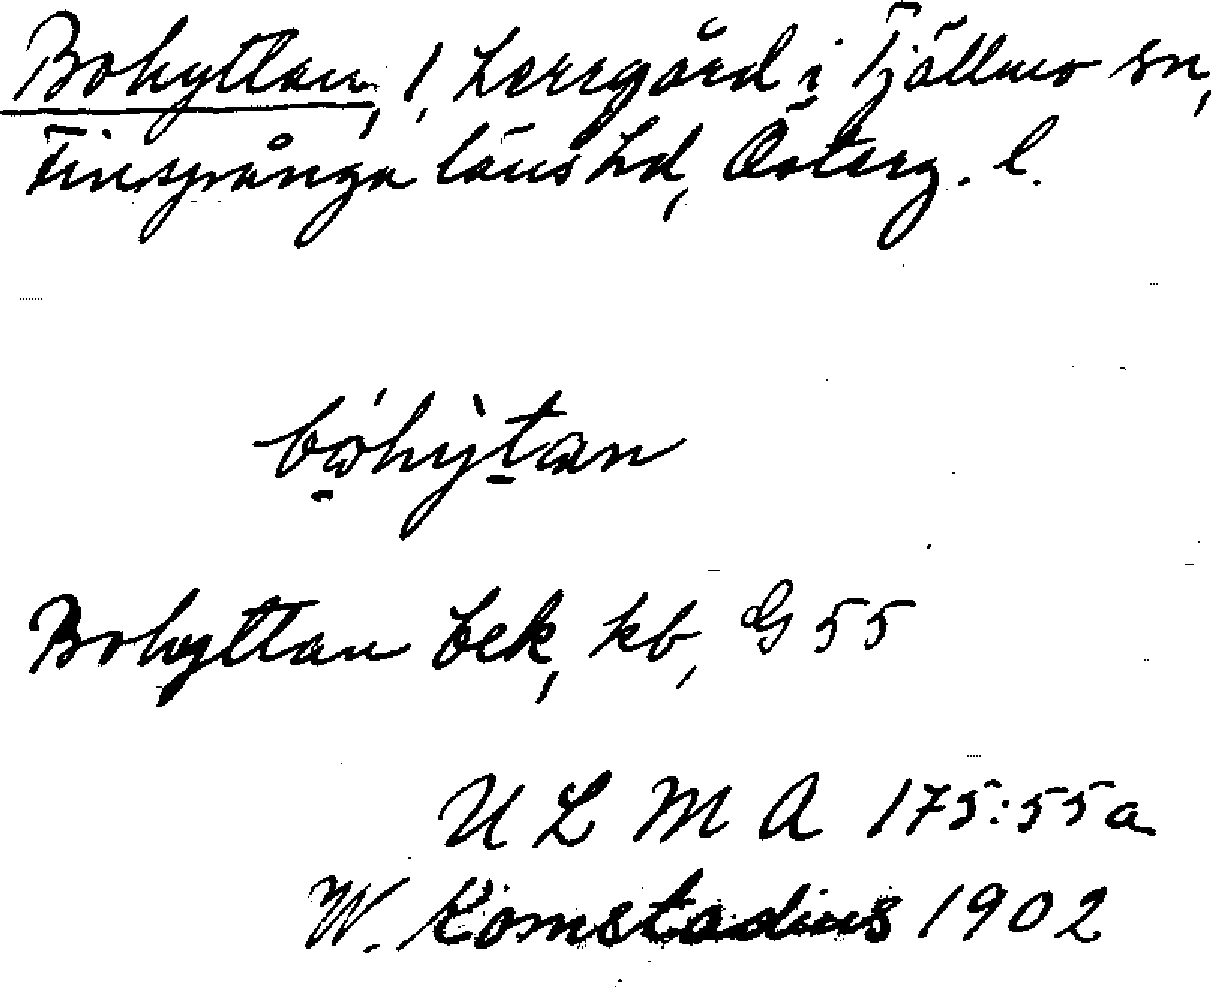 Bohyttan, 1, herrgård i Tjällmo sn,
Finspånga läns hd, Österg. l.
Bohyttan bek, kb, G 55
U L M A 175:55a
W. Komstadius 1902